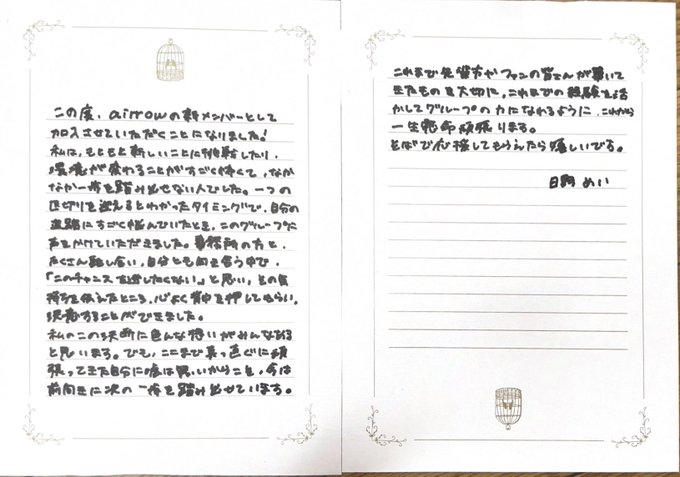 この度、airrowの新メンバーとして
加入させていただくことになりました!
私は、もともと新しいことに挑戦したり、
環境が変わることがすごく怖くて、なか
なか一歩を踏み出せない人でした。一つの
区切りを迎えるとわかったタイミングで、自分の
進路にすごく悩んでいたとき、このグループに
声をかけていただきました。事務所の方と、
たくさん話し合い、自分とも向き合う中で、
「このチャンスを逃したくない。」と思い、その気
持ちを伝えたところ、心よく背中を押してもらい、
決意することができました。
私のこの決断に色んな想いがみんなある
と思います。でも、ここまで真っ直ぐに頑
張ってきた自分に嘘は無いからこそ、今は
前向きに次の一歩を踏み出せています。
これまで先輩方やファンの皆さんが築いて
きたものを大切に、これまでの経験を活
かしてグループの力になれるように、これから
一生懸命頑張ります。
そばで応援してもらえたら嬉しいです。
日駒 めい